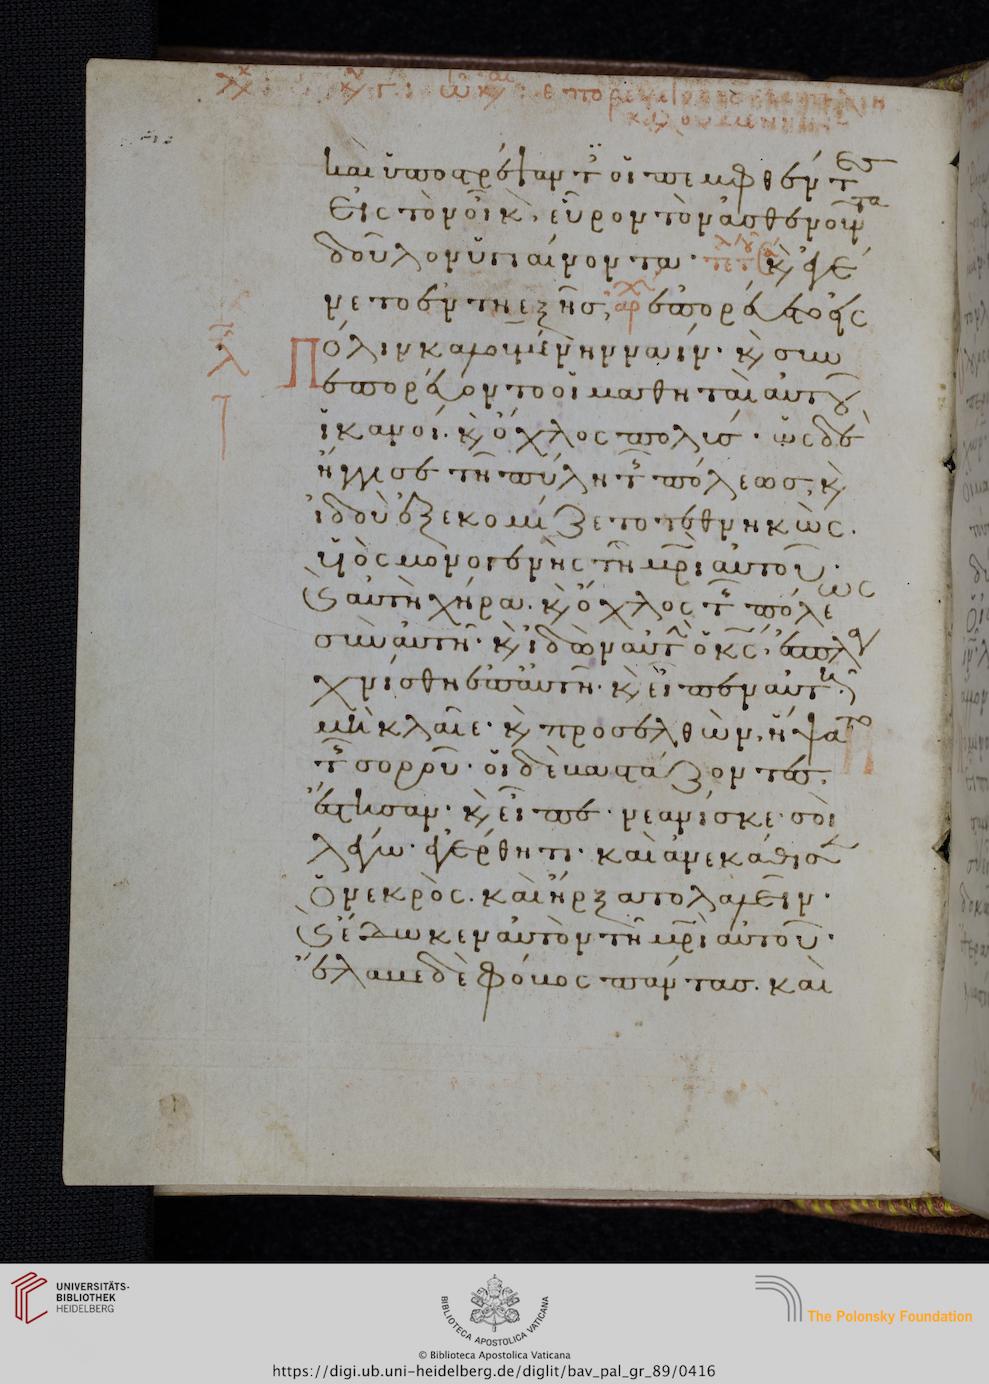 καὶ ὑποστρέψαντ οἱ πεμφθέντες
εἰς τὸν οἶκ, εὗρον τὸν ἀσθενοῦντα
δοῦλον ὑγιαίνοντα· κ ἐγέ
νετο ἐν τῇ ἑξῆς, ἐπορεύετο εἰς
Πόλιν καλουμένην ναΐν· κ συν
επορεύοντο οἱ μαθηταὶ αὐτοῦ
ἱκανοί· κ ὄχλος πολύς· ὡς δὲ
ἤγγισε τῇ πύλῃ τ πόλεως, κ
ἰδοὺ ἐξεκομίζετο τεθνηκὼς.
υἱὸς μονογενὴς τῇ μρὶ αὐτοῦ·
κ αὐτὴ χήρα· κ ὄχλος τ πόλεως
σὺν αὐτῇ· κ ἰδὼν αὐτ ὁ κς· ἐσπλα
χνίσθη ἐπ' αὐτῇ· κ εἶπεν αὐτῇ
μὴ κλαῖε· κ προσελθὼν, ἥψατο
τ σοροῦ· οἱ δὲ βαστάζοντες,
ἔστησαν· κ εἶπε· νεανίσκε σοὶ
λέγω· ἐγέρθητι· καὶ ἀνεκάθισεν
ὁ νεκρὸς. καὶ ἤρξατο λαλεῖν·
κ ἔδωκεν αὐτὸν τῇ μρὶ αὐτοῦ·
ἔλαβε δὲ φόβος πάντας. καὶ
UNIVERSITÄTS-
BIBLIOTHEK
HEIDELBERG
BIBLIOTECA APOSTOLICA VATICANA
The Polonsky Foundation
© Biblioteca Apostolica Vaticana
https://digi.ub.uni-heidelberg.de/diglit/bav_pal_gr_89/0416